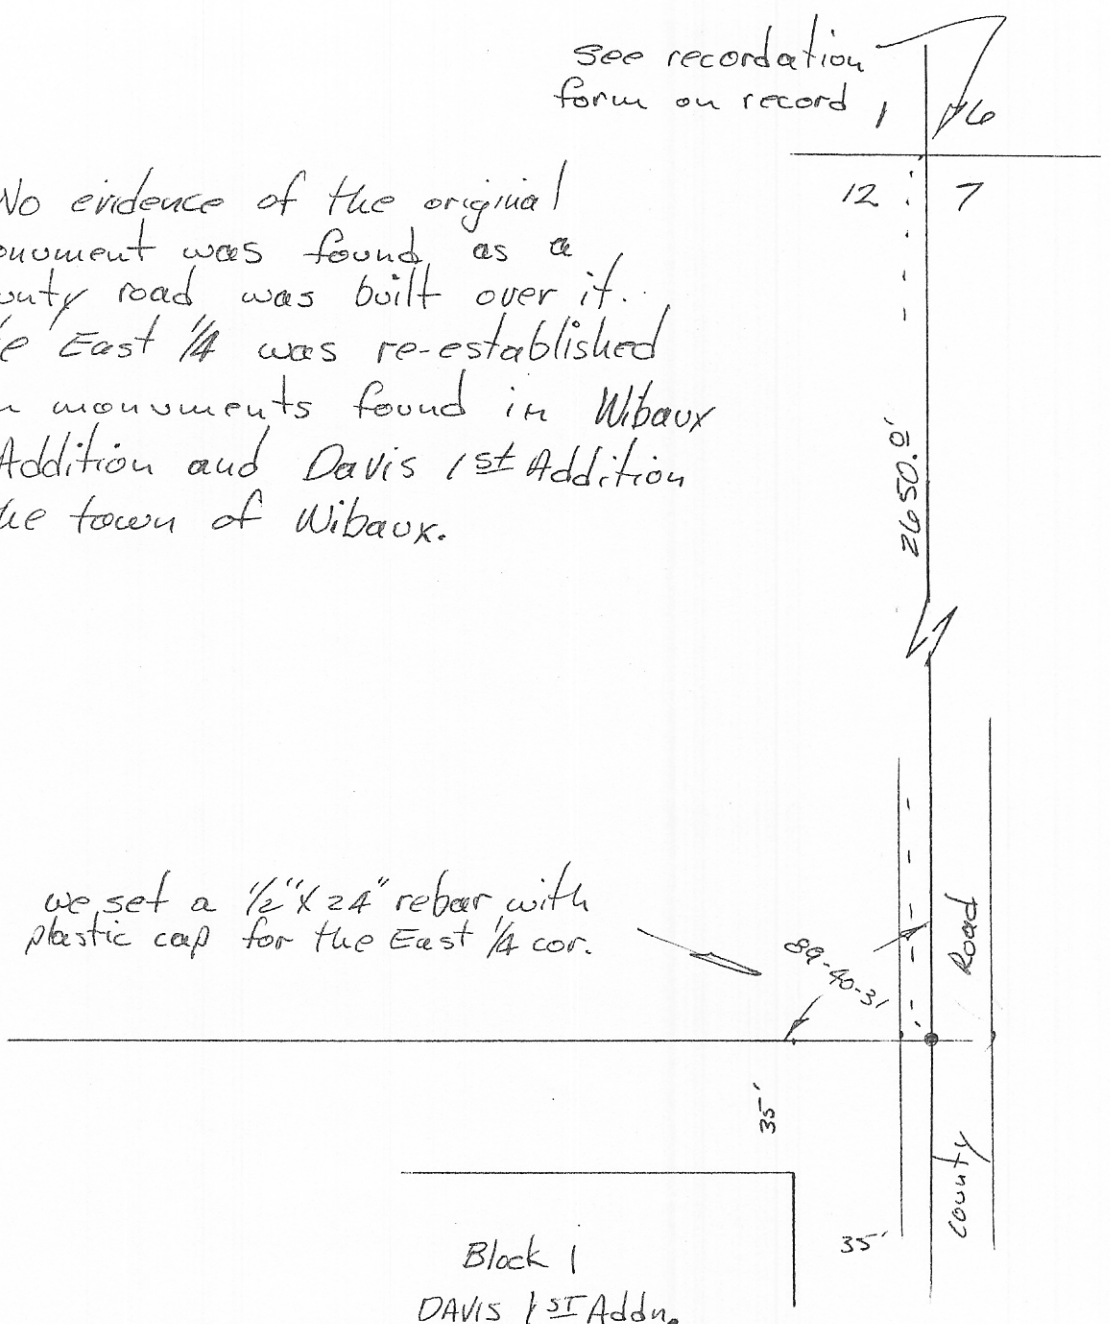 see recordation
form on record
1 6
12 7
No evidence of the original
onument was found as a
ounty road was built over it.
e East 1/4 was re-established
monuments found in Wibaux
Addition and Davis 1st Addition
he town of Wibaux.
2650.0'
we set a 1/2"X24" rebar with
plastic cap for the East 1/4 cor.
89-40-31
Road
35'
County
35'
Block 1
DAVIS 1ST Addn.